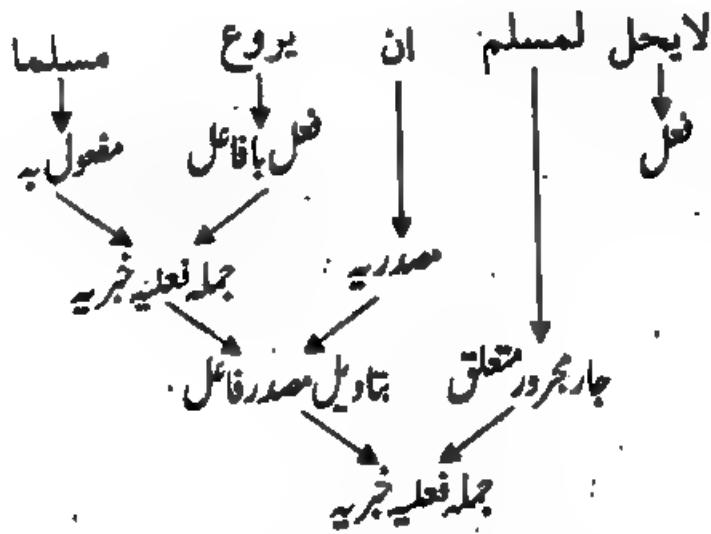 لا یحل لمسلم ان یروع مسلما
فعل فعل بافاعل مفعول بہ
مصدریہ جملہ فعلیہ خبریہ
جار مجرور متعلق بتاویل مصدر فاعل
جملہ فعلیہ خبریہ